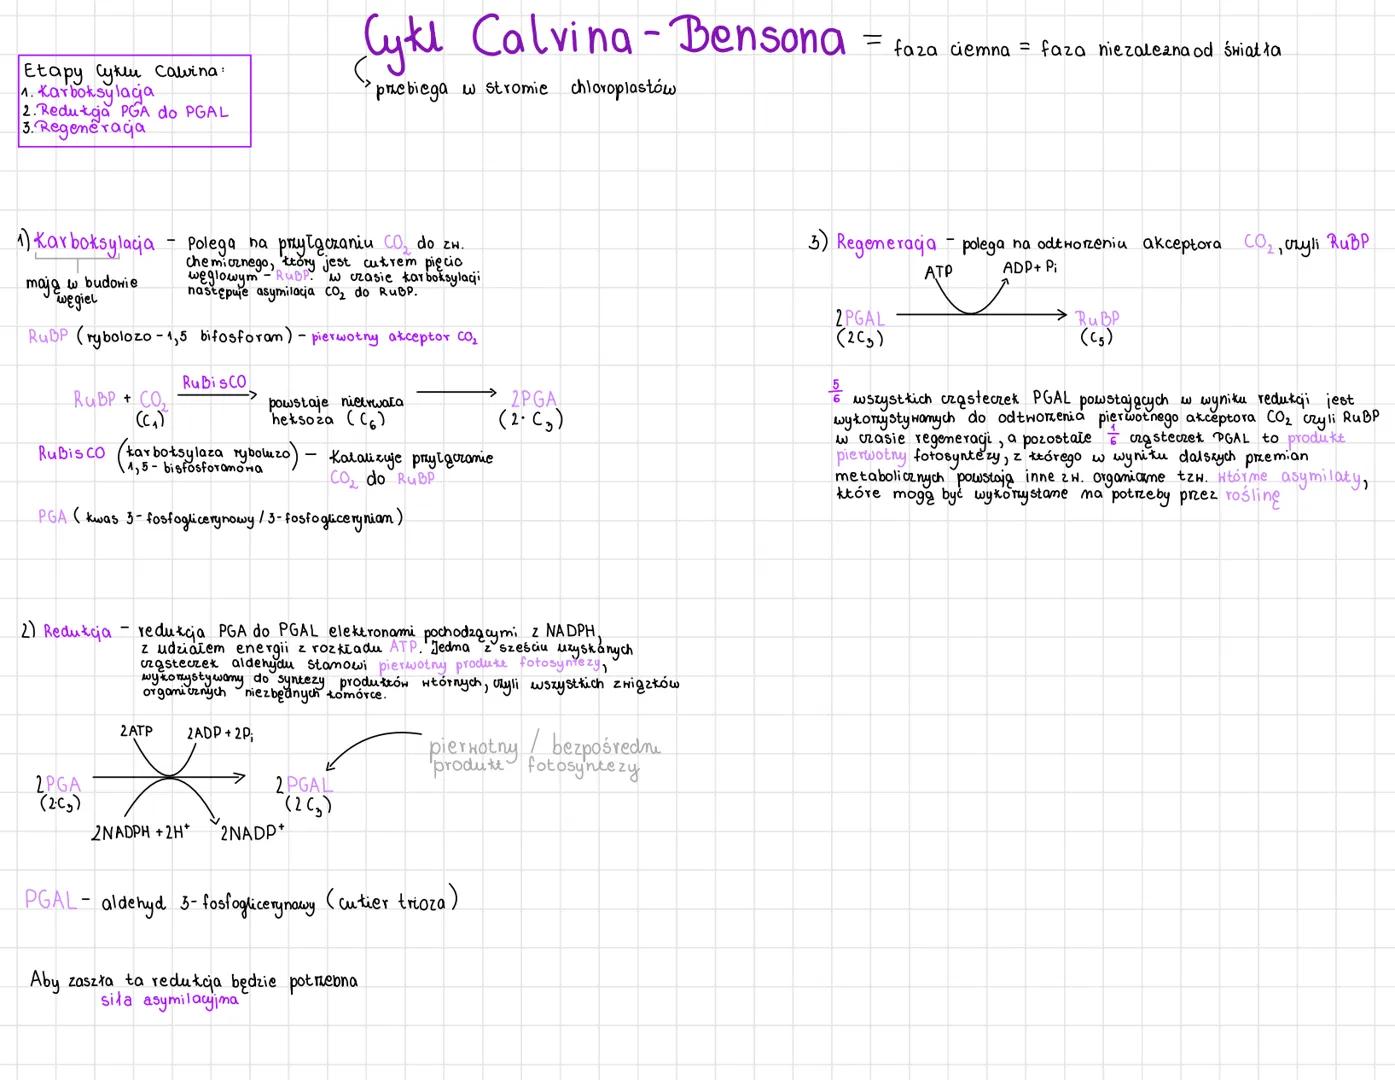 Cykl Calvina-Bensona = faza ciemna = faza niezależna od światła
przebiega w stromie chloroplastów
Etapy Cyklu Calvina:
1. Karboksylacja
2. Redukcja PGA do PGAL
3. Regeneracja
1) Karboksylacja - Polega na przyłączaniu CO₂ do zw.
chemicznego, który jest cukrem pięcio
węglowym - RuBP. w czasie karboksylacji
następuje asymilacja CO₂ do RuBP.
mają w budowie
węgiel
RuBP (rybolozo-1,5 bifosforan) - pierwotny akceptor CO₂
RuBP + CO₂
(C₁)
RuBisCO
powstaje nietrwała
heksoza (C₆)
2PGA
(2·C₃)
RuBisCO (karboksylaza rybulozo
1,5-bisfosforanowa) - Katalizuje przyłączanie
CO₂ do RuBP
PGA (kwas 3-fosfoglicerynowy / 3-fosfoglicerynian)
2) Redukcja - redukcja PGA do PGAL elektronami pochodzącymi z NADPH,
z udziałem energii z rozkładu ATP. Jedna z sześciu uzyskanych
cząsteczek aldehydu stanowi pierwotny produkt fotosyntezy,
wykorzystywany do syntezy produktów wtórnych, czyli wszystkich związków
organicznych niezbędnych komórce.
2ATP 2ADP+2Pi
2PGA
(2·C₃)
2PGAL
(2C₃)
2NADPH+2H⁺ 2NADP⁺
pierwotny / bezpośredni
produkt fotosyntezy
PGAL - aldehyd 3-fosfoglicerynowy (cukier trioza)
Aby zaszła ta redukcja będzie potrzebna
siła asymilacyjna
3) Regeneracja - polega na odtworzeniu akceptora CO₂, czyli RuBP
ATP ADP+Pi
2PGAL
(2C₃)
RuBP
(C₅)
5/6 wszystkich cząsteczek PGAL powstających w wyniku redukcji jest
wykorzystywanych do odtworzenia pierwotnego akceptora CO₂ czyli RuBP
w czasie regeneracji, a pozostałe 1/6 cząsteczek PGAL to produkt
pierwotny fotosyntezy, z którego w wyniku dalszych przemian
metabolicznych powstają inne zw. organiczne tzw. wtórne asymilaty,
które mogą być wykorzystane na potrzeby przez roślinę